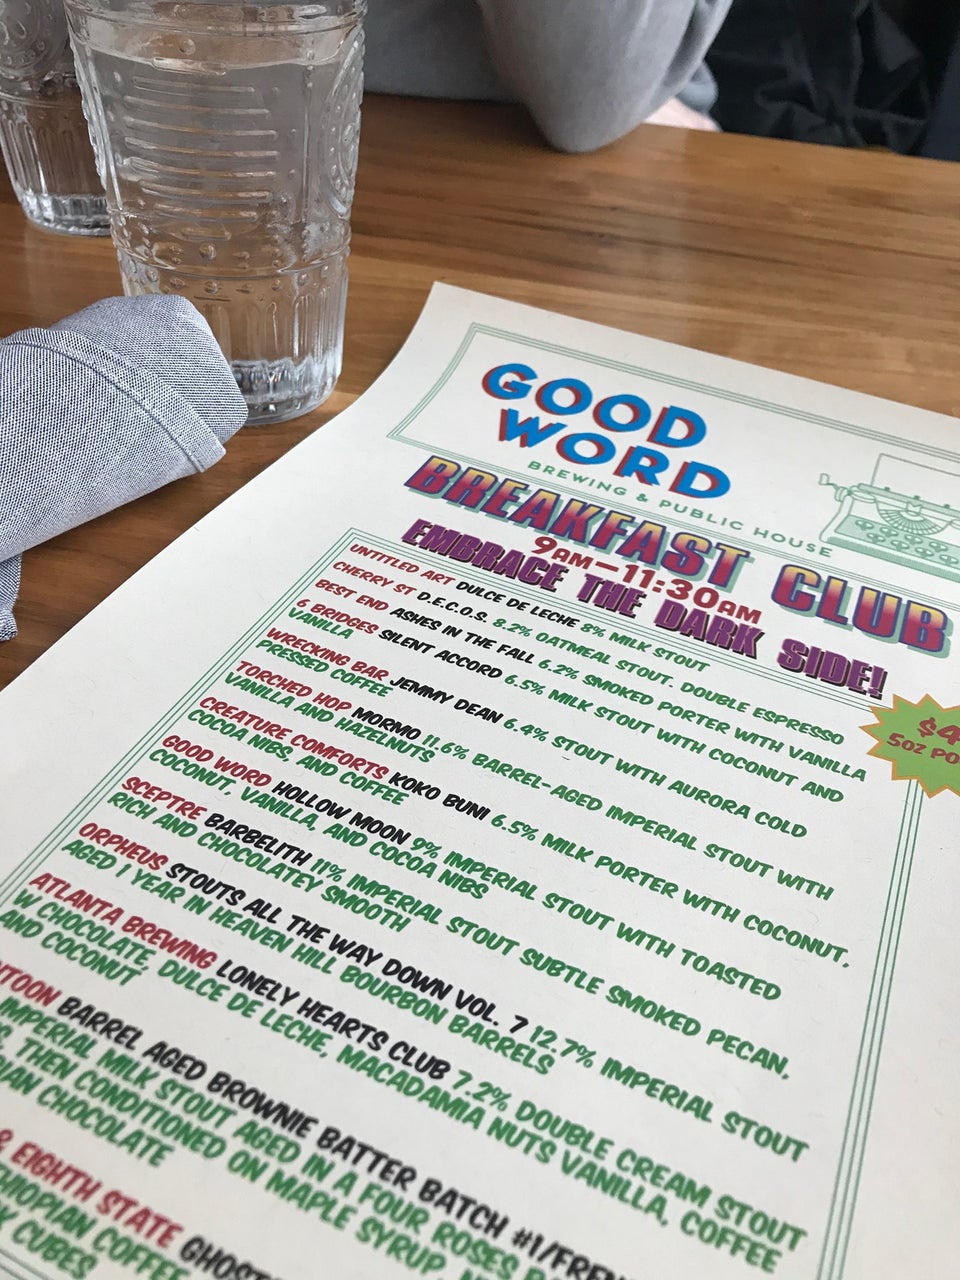 GOOD
WORD
BREWING & PUBLIC HOUSE
BREAKFAST CLUB
9AM—11:30AM
EMBRACE THE DARK SIDE!
UNTITLED ART DULCE DE LECHE 8% MILK STOUT
CHERRY ST D.E.C.O.S. 8.2% OATMEAL STOUT. DOUBLE ESPRESSO
BEST END ASHES IN THE FALL 6.2% SMOKED PORTER WITH VANILLA
6 BRIDGES SILENT ACCORD 6.5% MILK STOUT WITH COCONUT AND
VANILLA
WRECKING BAR JEMMY DEAN 6.4% STOUT WITH AURORA COLD
PRESSED COFFEE
TORCHED HOP MORMO 11.6% BARREL-AGED IMPERIAL STOUT WITH
VANILLA AND HAZELNUTS
CREATURE COMFORTS KOKO BUNI 6.5% MILK PORTER WITH COCONUT,
COCOA NIBS, AND COFFEE
GOOD WORD HOLLOW MOON 9% IMPERIAL STOUT WITH TOASTED
COCONUT, VANILLA, AND COCOA NIBS
SCEPTRE BARBELITH 11% IMPERIAL STOUT SUBTLE SMOKED PECAN,
RICH AND CHOCOLATEY SMOOTH
ORPHEUS STOUTS ALL THE WAY DOWN VOL. 7 12.7% IMPERIAL STOUT
AGED 1 YEAR IN HEAVEN HILL BOURBON BARRELS
ATLANTA BREWING LONELY HEARTS CLUB 7.2% DOUBLE CREAM STOUT
W CHOCOLATE, DULCE DE LECHE, MACADAMIA NUTS VANILLA, COFFEE
AND COCONUT
TOON BARREL AGED BROWNIE BATTER BATCH #1/FREN
IMPERIAL MILK STOUT AGED IN A FOUR ROSES
THEN CONDITIONED ON MAPLE SYRUP,
CHOCOLATE
& EIGHTH STATE GHOST
COFFEE
CUBES
$4
5OZ PO